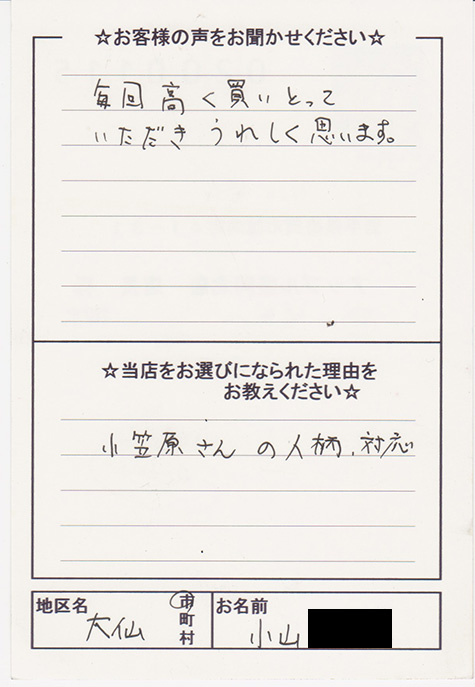 ☆お客様の声をお聞かせください☆
毎回高く買いとって
いただきうれしく思います。
☆当店をお選びになられた理由を
お教えください☆
小笠原さんの人柄、対応
地区名
大仙
市
町
村
お名前
小山